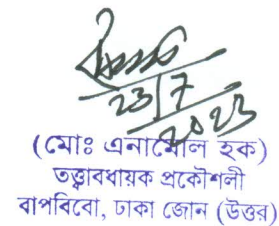 23/7
2023
(মোঃ এনামোল হক)
তত্ত্বাবধায়ক প্রকৌশলী
বাপবিবো, ঢাকা জোন (উত্তর)